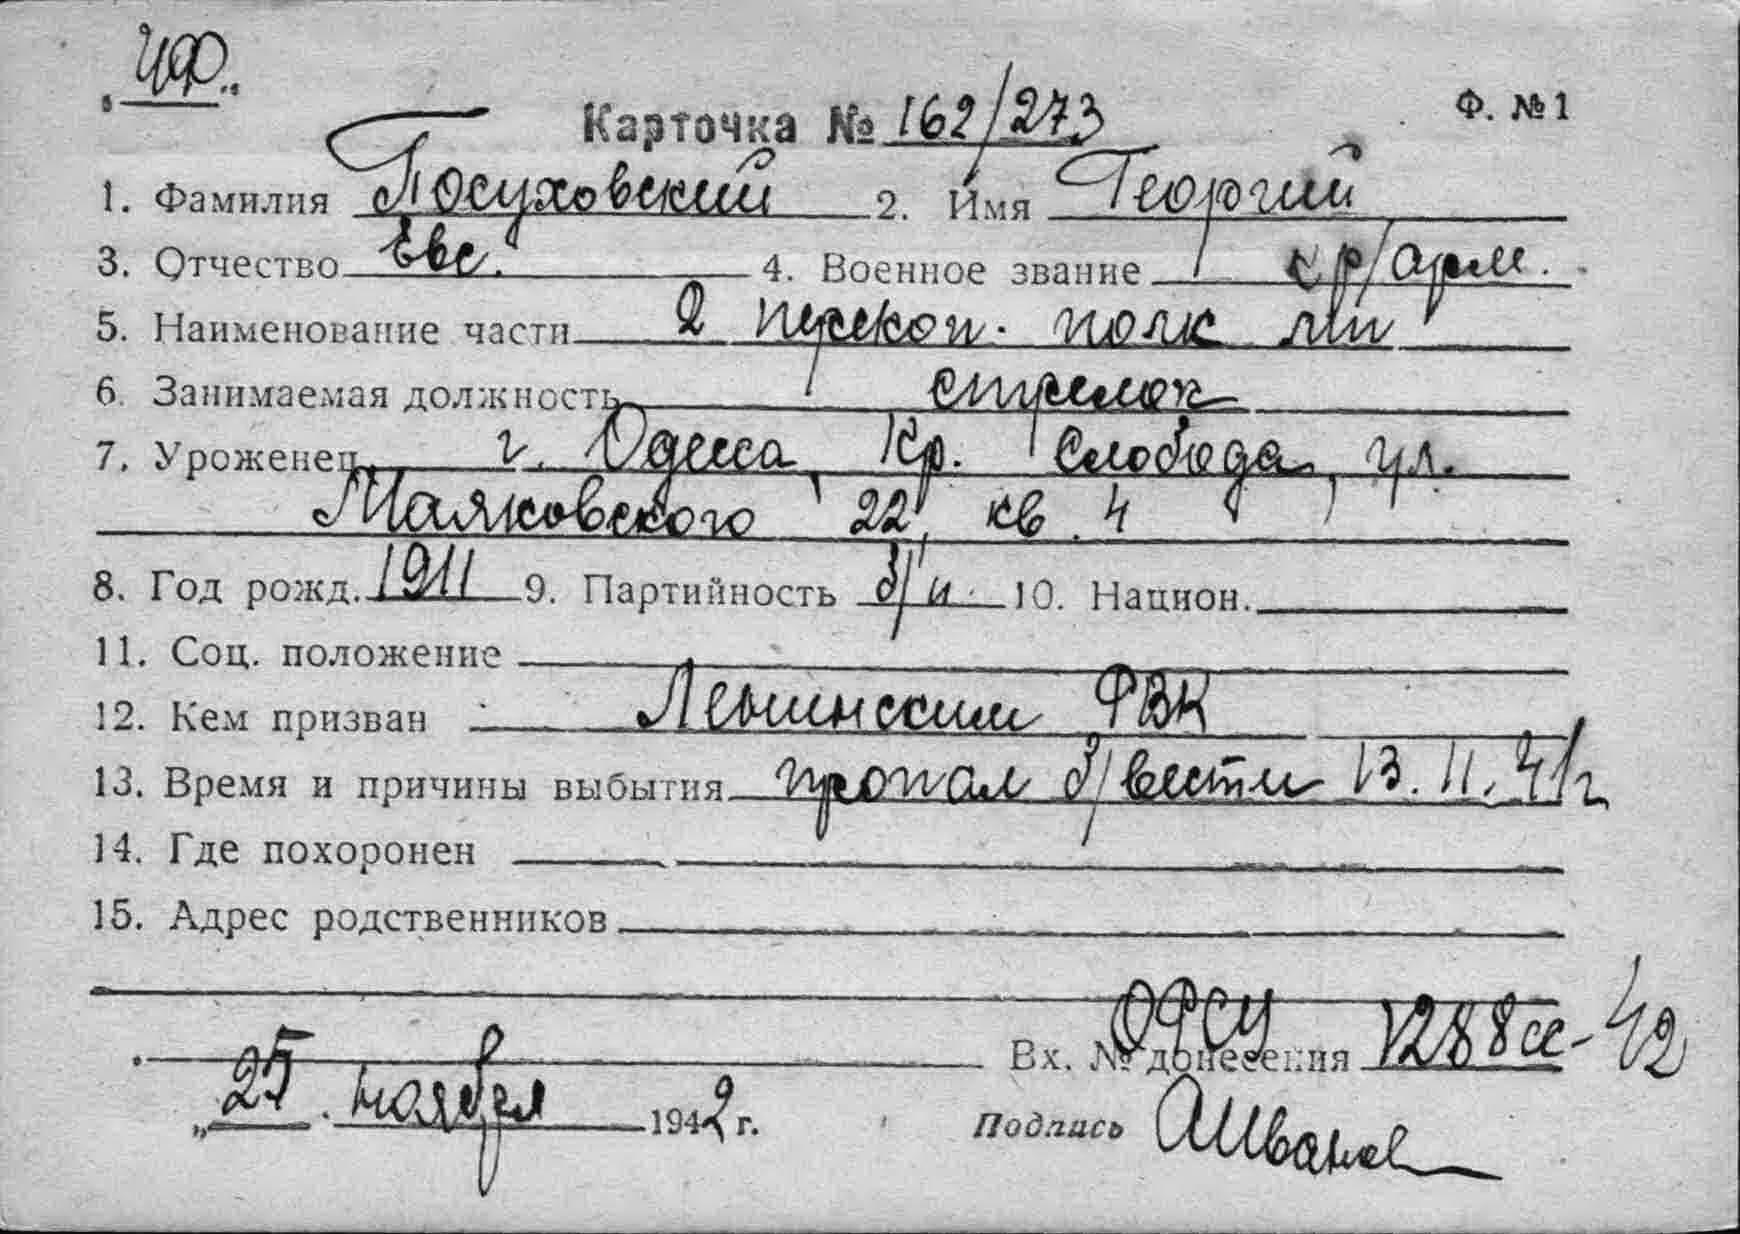 ЧФ.
Карточка № 162/273
Ф. №1
1. Фамилия Посуховский 2. Имя Георгий
3. Отчество Евс. 4. Военное звание кр/арм.
5. Наименование части 2 перекоп. полк мп
6. Занимаемая должность стрелок
7. Уроженец г. Одесса, Кр. Слобода, ул.
Маяковского 22, кв. 4
8. Год рожд. 1911 9. Партийность б/п. 10. Национ.
11. Соц. положение
12. Кем призван Ленинским РВК
13. Время и причины выбытия пропал б/вести 13.11.41г
14. Где похоронен
15. Адрес родственников
ОРСУ
Вх. № донесения 1288сс-42
„25. ноября 1942 г. Подпись АИванов